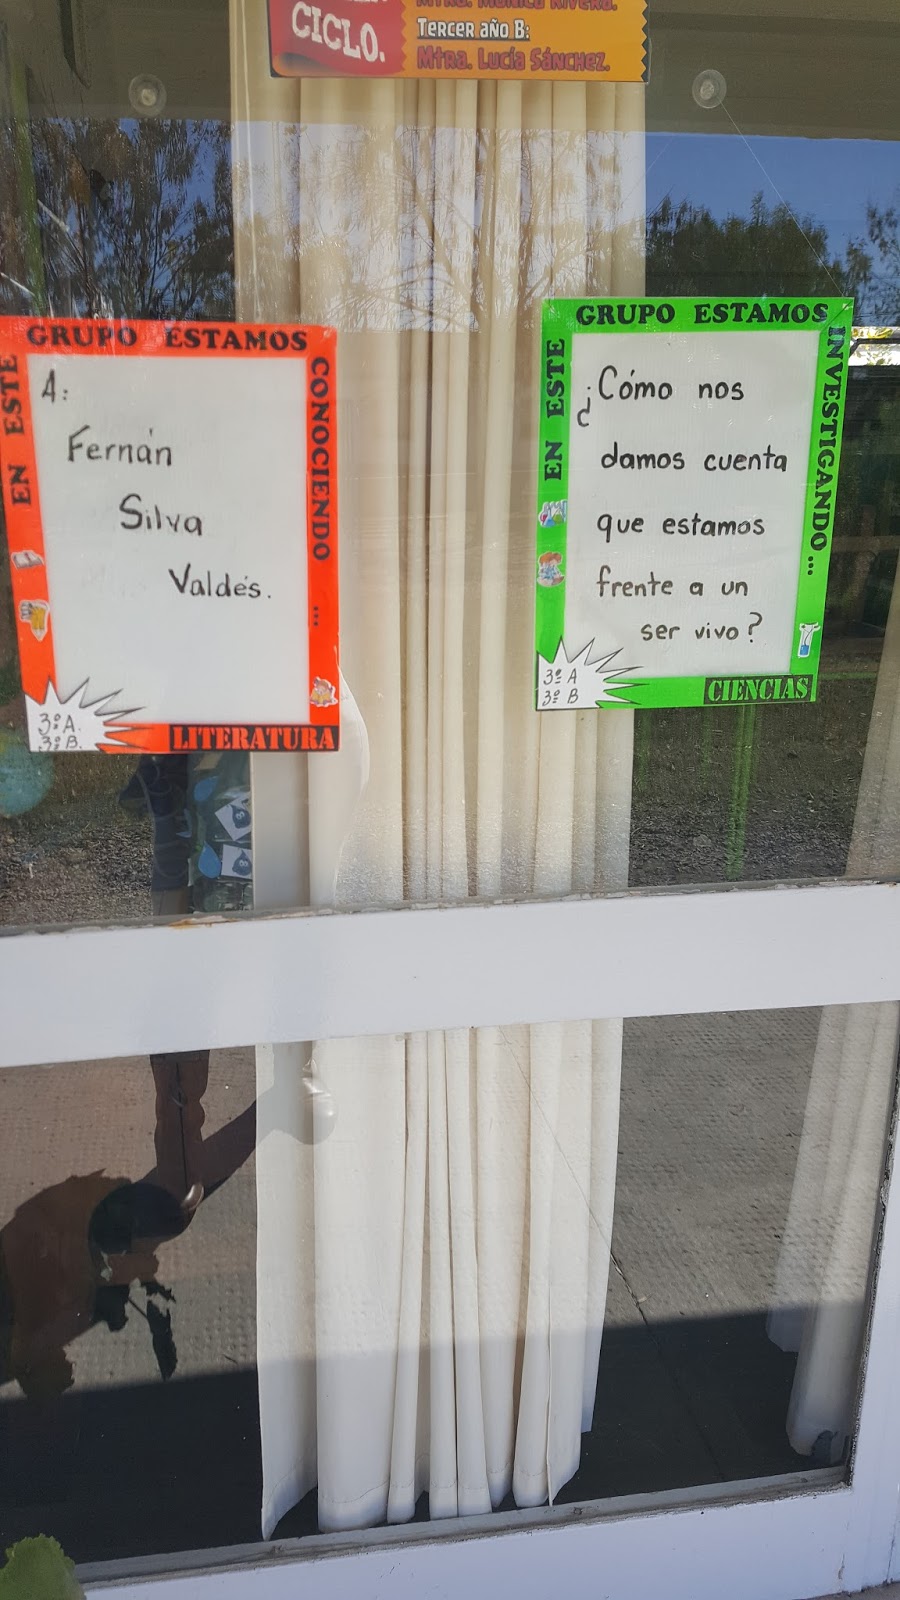 CICLO.
Mtra. Mónica Rivero.
Tercer año B:
Mtra. Lucía Sánchez.
EN ESTE GRUPO ESTAMOS CONOCIENDO ...
A:
Fernán
Silva
Valdés.
3º A.
3º B.
LITERATURA
EN ESTE GRUPO ESTAMOS INVESTIGANDO...
¿Cómo nos
damos cuenta
que estamos
frente a un
ser vivo?
3º A
3º B
CIENCIAS